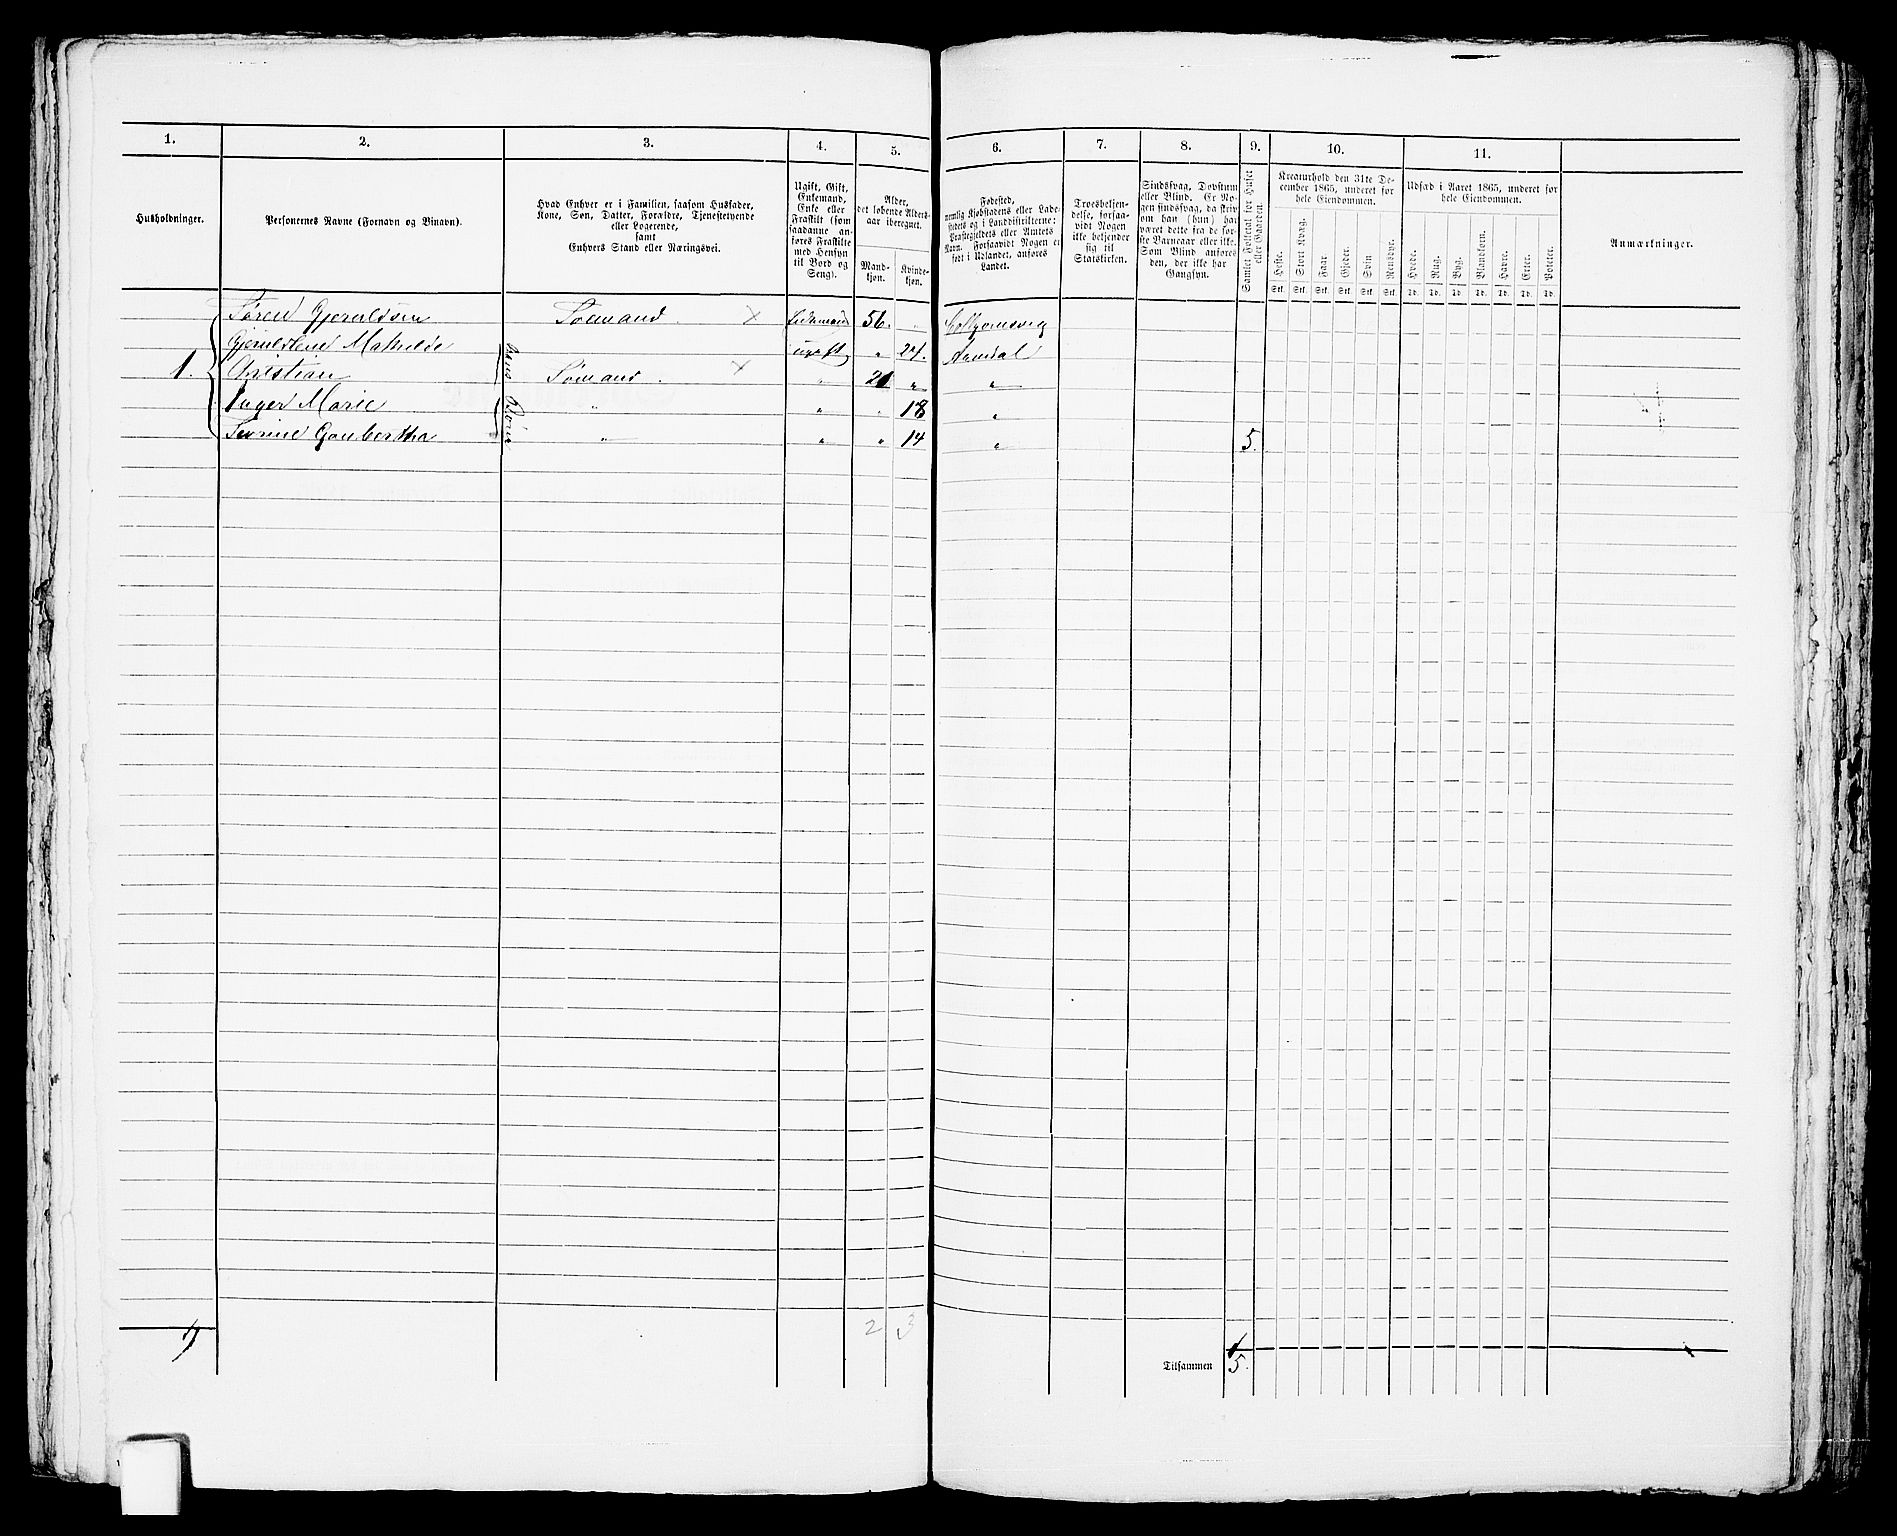 1.
2.
3.
4.
5.
6.
7.
8.
9.
10.
11.
Husholdninger.
Personernes Navne (Fornavn og Binavn).
Hvad Enhver er i Familien, saasom Husfader,
Kone, Søn, Datter, Forældre, Tjenestetyende
eller Logerende,
samt
Enhvers Stand eller Næringsvei.
Ugift, Gift,
Enkemand,
Enke eller
Fraskilt (som
saadanne an-
føres Fraskilte
med Hensyn
til Bord og
Seng).
Alder,
det løbende Alders-
aar iberegnet.
Mand-
kjøn.
Kvinde-
kjøn.
Fødested,
nemlig Kjøbstadens eller Lade-
stedets og i Landdistrikterne:
Præstegjeldets eller Amtets
Navn. Forsaavidt Nogen er
født i Udlandet, anføres
Landet.
Troesbekjen-
delse, forsaa-
vidt Nogen
ikke bekjender
sig til
Statskirken.
Sindssvag, Døvstum
eller Blind. Er No-
gen sindssvag, da skriv
om han (hun) har
været dette fra de før-
ste Barneaar eller ikke.
Som Blind anføres
den, der ikke har
Gangsyn.
Samlet Folketal for Huset
eller Gaarden.
Kreaturhold den 31te De-
cember 1865, underet for
hele Eiendommen.
Heste.
Stort Kvæg.
Faar
Gjeder.
Svin
Rensdyr.
Stk. Stk. Stk. Stk. Stk. Stk.
Udsæd i Aaret 1865, underet for
hele Eiendommen.
Hvede.
Rug.
Byg.
Blandkorn.
Havre.
Erter.
Poteter.
Td. Td. Td. Td. Td. Td. Td.
Anmærkninger.
Søren Gjeruldsen Sømand. × Enkemand 56. "
Gjeruldine Mathilde ugift " 27. Arendal
1. Christian Sømand. × " 21 " "
Inger Marie " " " 18 "
Sevrine Gonbertha " " " 14 " 5.
hans Børn
2 3
Tilsammen 5.